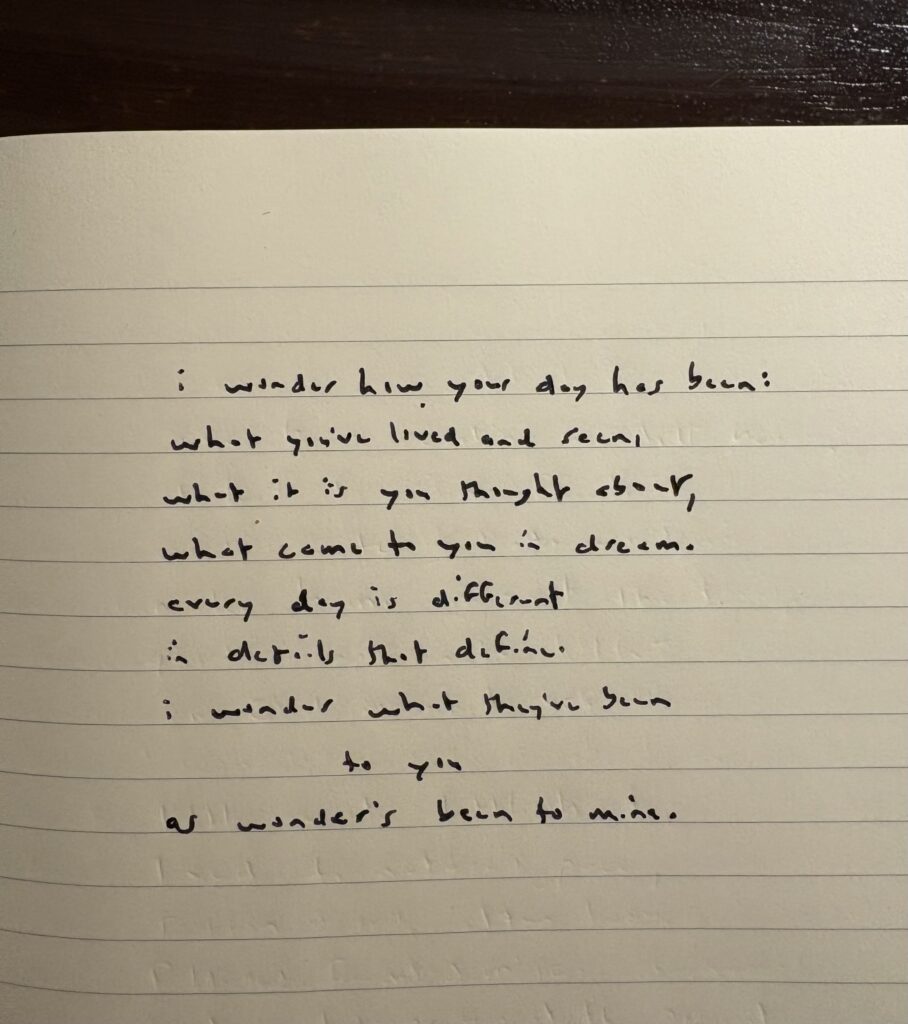 i wonder how your day has been:
what you've lived and seen,
what it is you thought about,
what came to you in dream.
every day is different
in details that define.
i wonder what they've been
to you
as wonder's been to mine.